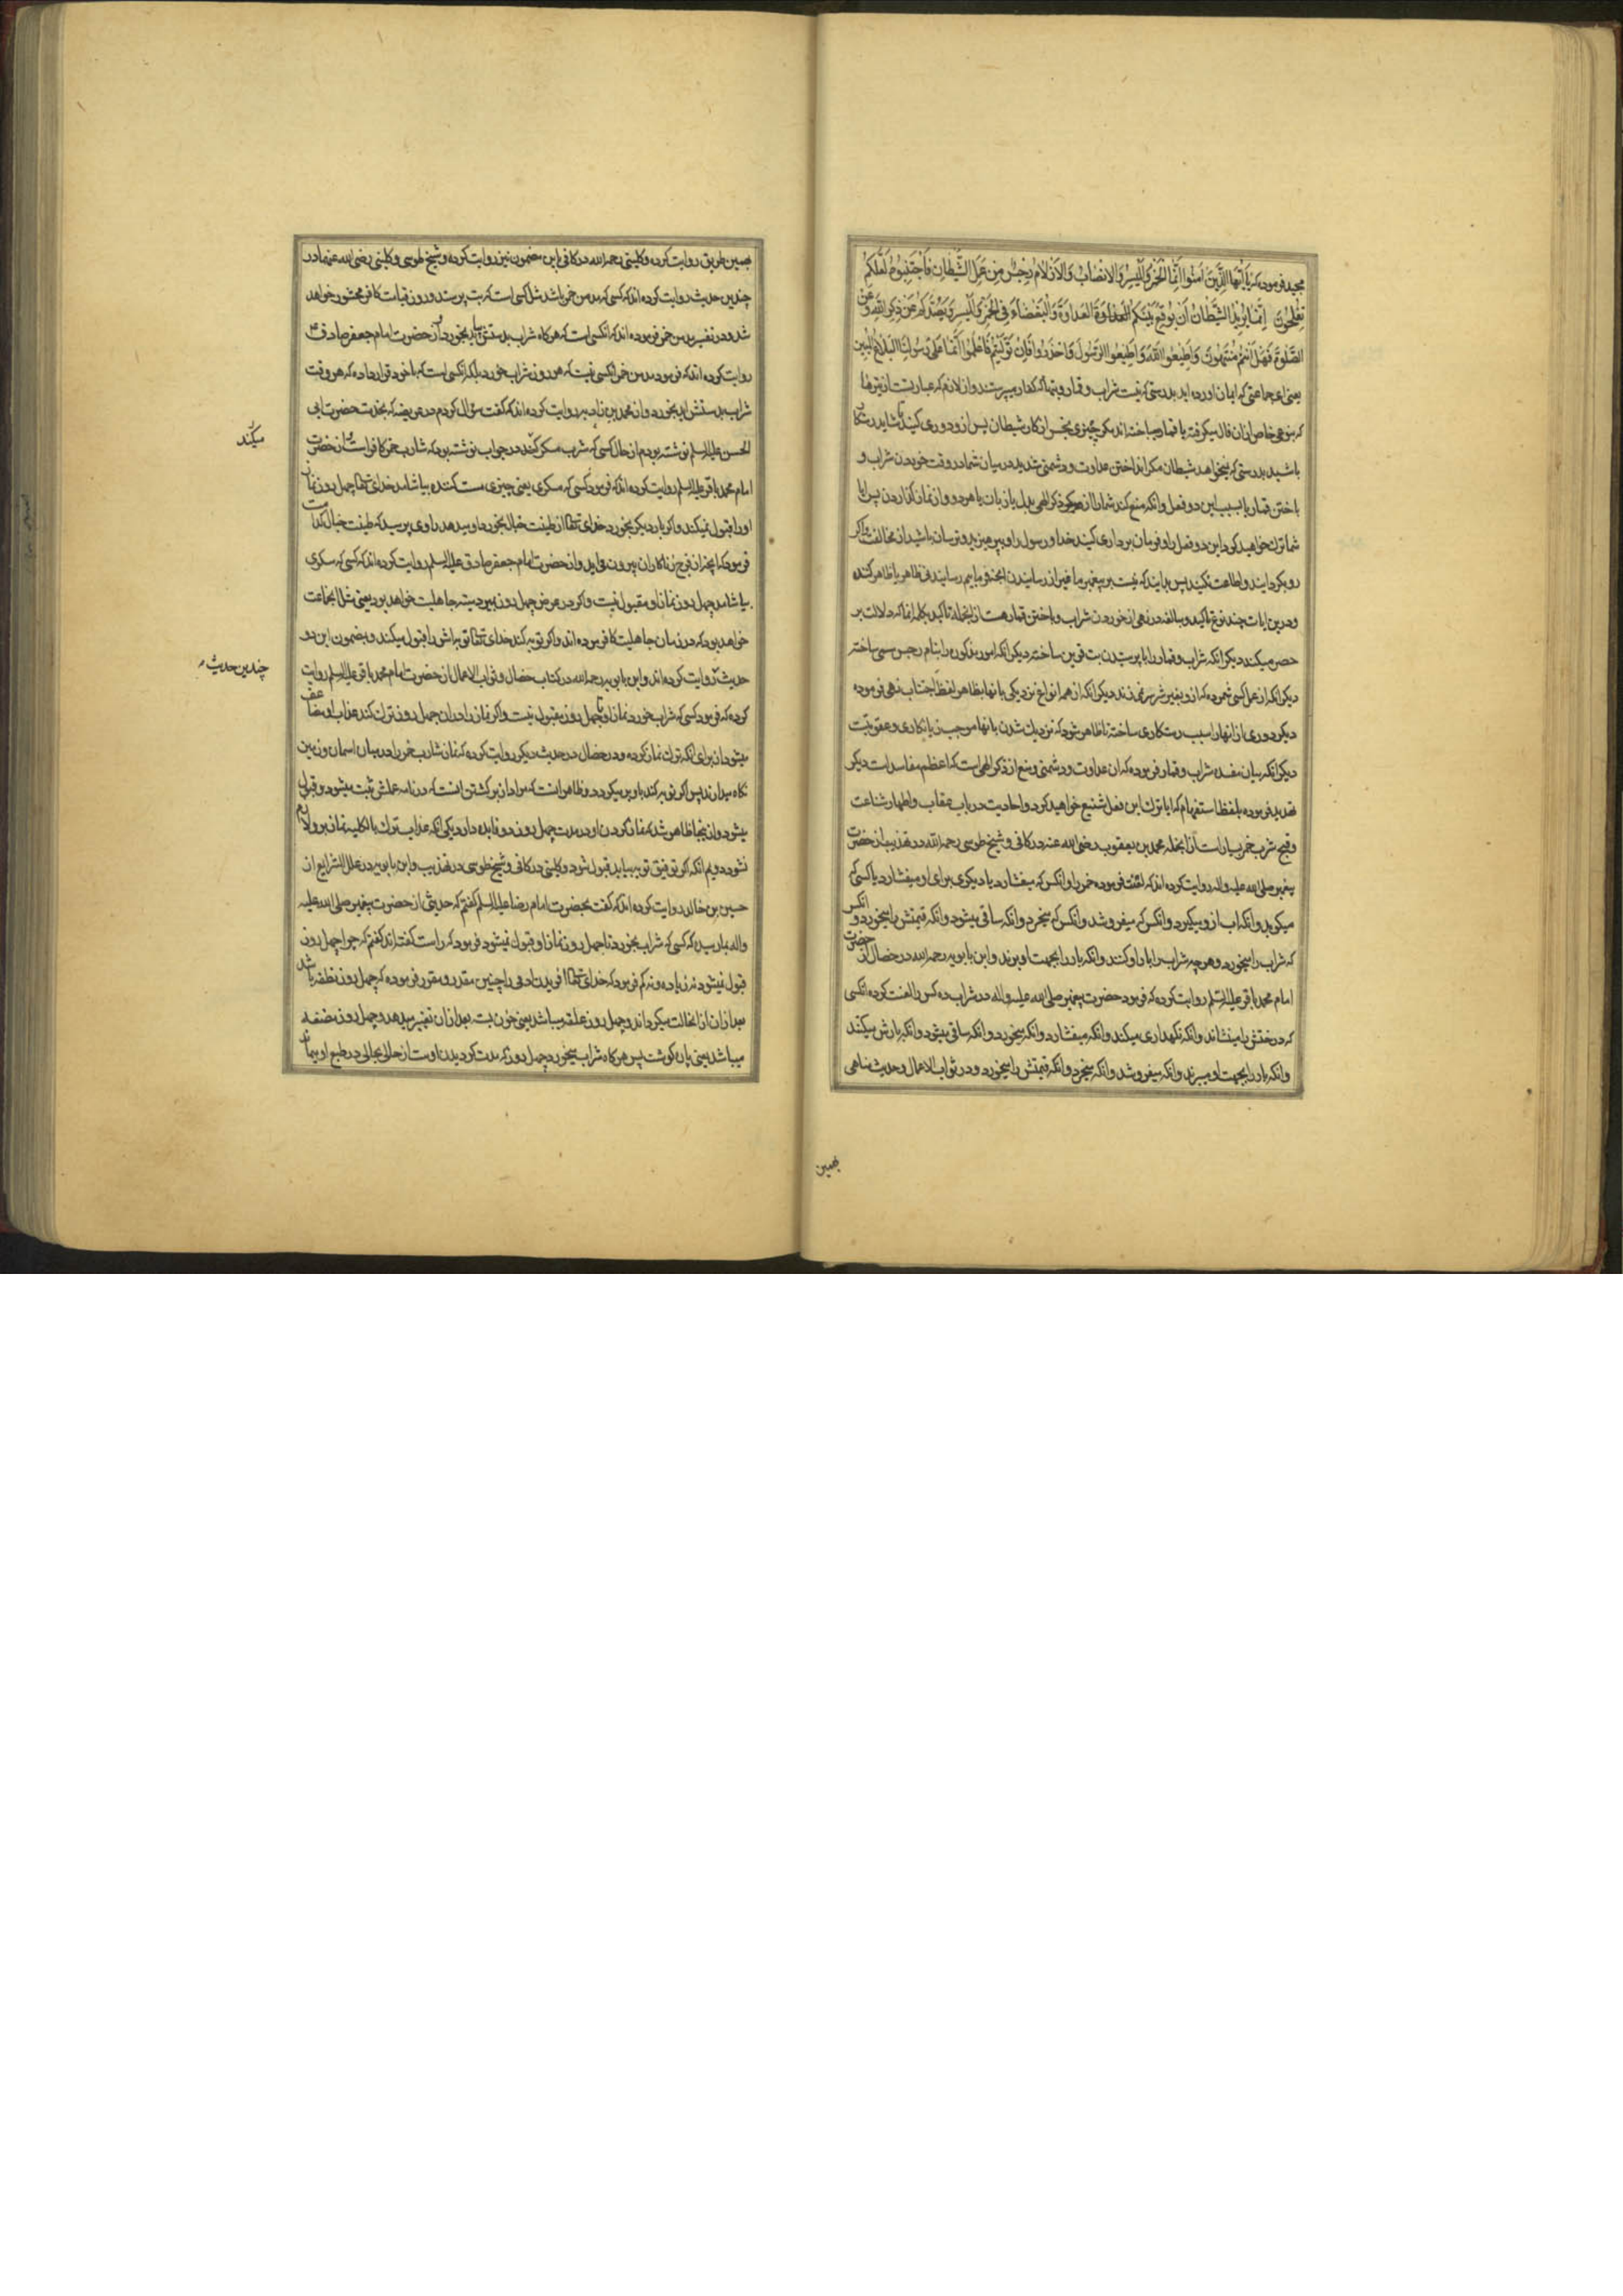 مجید فرموده که یَا اَیُّهَا الَّذِینَ اٰمَنُوا اِنَّمَا الْخَمْرُ وَالْمَیْسِرُ وَالْاَنْصَابُ وَالْاَزْلَامُ رِجْسٌ مِنْ عَمَلِ الشَّیْطَانِ فَاجْتَنِبُوهُ لَعَلَّکُمْ
تُفْلِحُونَ اِنَّمَا یُرِیدُ الشَّیْطَانُ اَنْ یُوقِعَ بَیْنَکُمُ الْعَدَاوَةَ وَالْبَغْضَاءَ فِی الْخَمْرِ وَالْمَیْسِرِ وَیَصُدَّکُمْ عَنْ ذِکْرِ اللّٰهِ وَعَنِ
الصَّلٰوةِ فَهَلْ اَنْتُمْ مُنْتَهُونَ وَاَطِیعُوا اللّٰهَ وَاَطِیعُوا الرَّسُولَ وَاحْذَرُوا فَاِنْ تَوَلَّیْتُمْ فَاعْلَمُوا اَنَّمَا عَلٰی رَسُولِنَا الْبَلَاغُ الْمُبِینُ
یعنی ای جماعتی که ایمان اورده اید بدرستی که نیست شراب و قمار و بتها که کفار میپرستند و ازلام که عبارتست از تیرها
که بنوعی خاص ازان فال میکرفته یا قمار میباخته اند مکر چیزی نجس از کار شیطان پس ازو دوری کنید تا شاید رستکار
باشید بدرستی که نمیخواهد شیطان مکر انداختن عداوت و دشمنی شدید در میان شما در وقت خوردن شراب و
باختن قمار یا بسبب این دو فعل و انکه منع کند شما را از ذکر الهی بدل یا زبان یا هر دو و از نماز کذاردن پس ایا
شما ترک خواهید کرد این دو فعل را و فرمان برداری کنید خدا و رسول را و بپرهیزید و ترسان باشید از مخالفت و اکر
رو بکردانید و اطاعت نکنید پس بدانید که نیست بر پیغمبر ما غیر از رسانیدن انچه فرماییم رسانیدنی ظاهر یا ظاهر کننده
و درین ایات چند نوع تاکید و مبالغه در نهی از خوردن شراب و باختن قمار هست از انجمله تاکید بکلمه انما که دلالت بر
حصر میکند دیکر انکه شراب و قمار را با پرستیدن بت قرین ساخته دیکر انکه امور مذکوره را بنام رجس مسمی ساخته
دیکر انکه از عمل کسی شمرده که ازو بغیر شر سر نمیزند دیکر انکه از همه انواع نزدیکی بانها بظاهر لفظ اجتناب نهی فرموده
دیکر دوری از انها را سبب رستکاری ساخته تا ظاهر شود که نزدیک شدن بانها موجب زیانکاری و عقوبت
دیکر انکه بیان مفسده شراب و قمار فرموده که ان عداوت و دشمنی و منع از ذکر الهی است که اعظم مفاسد است دیکر
تهدید فرموده بلفظ استفهام که ایا ترک این فعل شنیع خواهید کرد و احادیث در باب عقاب و اظهار شناعت
و قبح شرب خمر بسیار است از انجمله محمد بن یعقوب رضی الله عنه در کافی و شیخ طوسی رحمه الله در تهذیب از حضرت
پیغمبر صلی الله علیه و اله روایت کرده اند که لعنت فرموده خمر را و انکس که میفشارد یا دیکری برای او میفشارد یا کسی که
میکوبد و انکه اب ازو میکیرد و انکس که میفروشد و انکس که میخرد و انکه ساقی میشود و انکه قیمتش را میخورد و انکس
که شراب را میخورد و هر چه شراب را بار او کنند و انکه بار را بجهت او برند و ابن بابویه رحمه الله در خصال از حضرت
امام محمد باقر علیه السلم روایت کرده که فرمود حضرت پیغمبر صلی الله علیه و اله در شراب ده کس را لعنت کرده انکسی
که درختش را مینشاند و انکه نکهداری میکند و انکه میفشارد و انکه میخورد و انکه ساقی میشود و انکه بارش میکند
و انکه بار را بجهت او میبرند و انکه میفروشد و انکه میخرد و انکه قیمتش را میخورد و در ثواب الاعمال و حدیث مناهی
بهمین
بهمین طریق روایت کرده و کلینی رحمه الله در کافی این مضمون نیز روایت کرده و شیخ طوسی و کلینی رضی الله عنهما در
چندین حدیث روایت کرده اند که کسی که مدمن خمر باشد مثل کسی است که بت پرستد و روز قیامت کافر محشور خواهد
شد و در تفسیر مدمن خمر فرموده اند که انکسی است که هر کاه شراب بدستش بیاید بخورد و از حضرت امام جعفر صادق ع
روایت کرده اند که فرمود مدمن خمر انکسی نیست که هر روز شراب خورد بلکه انکسی است که با خود قرار داده که هر وقت
شراب بدستش اید بخورد و از محمد بن زادبه روایت کرده اند که کفت سؤال کردم در عریضه که بخدمت حضرت ابی
الحسن علیه السلم نوشته بودم از حال کسی که شرب مسکر میکند در جواب نوشته بود که شارب خمر کافر است و از حضرت
میکند
امام محمد باقر علیه السلم روایت کرده اند که فرمود کسی که مسکری یعنی چیزی مست کننده بیاشامد خدای تعالی چهل روز نماز
او را قبول نمیکند و اکر بار دیکر بخورد خدای تعالی از طینت خبال بخورد او میدهد راوی پرسید که طینت خبال کدامست
فرمود که انچه از فرج زناکاران بیرون می اید و از حضرت امام جعفر صادق علیه السلم روایت کرده اند که کسی که مسکری
بیاشامد چهل روز نماز او مقبول نیست و اکر در عرض چهل روز بمیرد میته جاهلیت خواهد بود یعنی مثل انجماعت
خواهد بود که در زمان جاهلیت کافر بوده اند و اکر توبه کند خدای تعالی توبه اش را قبول میکند و بمضمون این دو
حدیث روایت کرده اند و ابن بابویه رحمه الله در کتاب خصال و ثواب الاعمال از حضرت امام محمد باقر علیه السلم روایت
چندین حدیث
کرده که فرمود کسی که شراب خورد نماز او تا چهل روز مقبول نیست و اکر نماز را در ان چهل روز ترک کند عذاب او مضاعف
میشود از برای انکه ترک نماز کرده و در خصال در حدیث دیکر روایت کرده که نماز شارب خمر را در میان اسمان و زمین
نکاه میدارند پس اکر توبه کند باو بر میکردد و ظاهر انست که مراد از برکشتن انست که در نامه عملش ثبت میشود و قبول
میشود و از اینجا ظاهر شد که نماز کردن او در مدت چهل روز دو فایده دارد یکی انکه عذاب ترک بالکلیه نماز برو لازم
نشود دویم انکه اکر توفیق توبه بیابد قبول شود و کلینی در کافی و شیخ طوسی در تهذیب و ابن بابویه در علل الشرایع از
حسین بن خالد روایت کرده اند که کفت بحضرت امام رضا علیه السلم کفتم که حدیثی از حضرت پیغمبر صلی الله علیه
واله بما رسیده که کسی که شراب بخورد تا چهل روز نماز او قبول نمیشود فرمود که راست کفته اند کفتم که چرا چهل روز
قبول نمیشود نه زیاده و نه کم فرمود که خدای تعالی افریدن ادمی را چنین مقدر و مقرر فرموده که چهل روز نطفه باشد
بعد از ان از انحالت میکرداند و چهل روز علقه میباشد یعنی خون بسته بعد از ان تغییر میدهد و چهل روز مضغه
میباشد یعنی پاره کوشت پس هر کاه شراب میخورد چهل روز که مدت کردیدن اوست از حالی بحالی در طبع او میماند